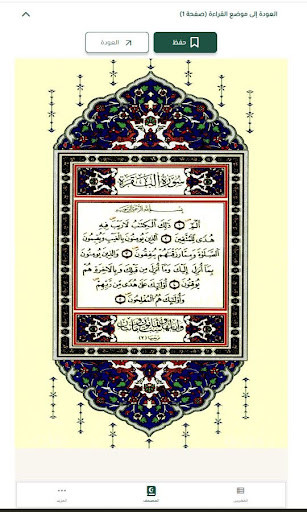 العودة إلى موضع القراءة (صفحة 1)
حفظ
العودة
سورة البقرة
بسم الله الرحمن الرحيم
الٓمٓ ١ ذَٰلِكَ ٱلْكِتَٰبُ لَا رَيْبَ فِيهِ
هُدًى لِّلْمُتَّقِينَ ٢ ٱلَّذِينَ يُؤْمِنُونَ بِٱلْغَيْبِ وَيُقِيمُونَ
ٱلصَّلَوٰةَ وَمِمَّا رَزَقْنَٰهُمْ يُنفِقُونَ ٣ وَٱلَّذِينَ يُؤْمِنُونَ
بِمَآ أُنزِلَ إِلَيْكَ وَمَآ أُنزِلَ مِن قَبْلِكَ وَبِٱلْءَاخِرَةِ هُمْ
يُوقِنُونَ ٤ أُو۟لَٰٓئِكَ عَلَىٰ هُدًى مِّن رَّبِّهِمْ
وَأُو۟لَٰٓئِكَ هُمُ ٱلْمُفْلِحُونَ ٥
المصحف
المزيد